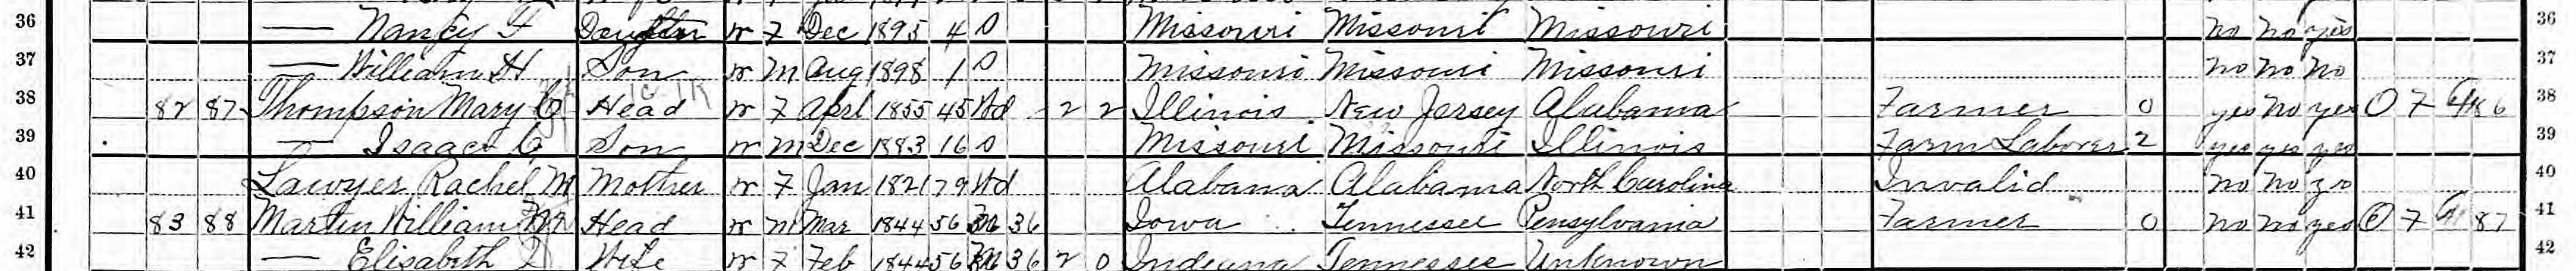 36 — Nancy F Daughter W F Dec 1895 4 S Missouri Missouri Missouri no no yes 36
37 — William H Son W M Aug 1898 1 S Missouri Missouri Missouri no no no 37
38 82 87 Thompson Mary C Head W F Aprl 1855 45 Wd 2 2 Illinois New Jersey Alabama Farmer 0 yes no yes O F 86 38
39 — Isaac C Son W M Dec 1883 16 S Missouri Missouri Illinois Farm Laborer 2 yes yes yes 39
40 Lawyer Rachel M Mother W F Jan 1821 79 Wd Alabama Alabama North Carolina Invalid no no 40
41 83 88 Martin William Head W M Mar 1844 56 M 36 Iowa Tennessee Pensylvania Farmer 0 no no yes O F 87 41
42 — Elisabeth Wife W F Feb 1844 56 M 36 2 0 Indiana Tennessee Unknown 42